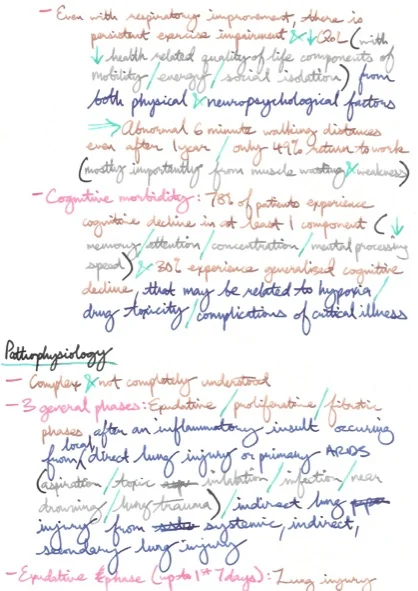 - Even with respiratory improvement, there is
persistent exercise impairment & ↓ QoL (with
↓ health related quality of life components of
mobility / energy / social isolation) from
both physical & neuropsychological factors
⇒ Abnormal 6 minute walking distances
even after 1 year / only 49% return to work
(mostly importantly from muscle wasting & weakness)
- Cognitive morbidity: 78% of patients experience
cognitive decline in at least 1 component (↓
memory / attention / concentration / mental processing
speed) & 30% experience generalised cognitive
decline, that may be related to hypoxia
drug toxicity / complications of critical illness
Pathophysiology
- Complex & not completely understood
- 3 general phases: Exudative / proliferative / fibrotic
phases after an inflammatory insult occuring
from local, direct lung injury or primary ARDS
(aspiration / toxic inhilation / infection / near
drowning / lung trauma) / indirect lung
injury from systemic, indirect,
secondary lung injury
- Exudative phase (up to 1st 7 days): Lung injury